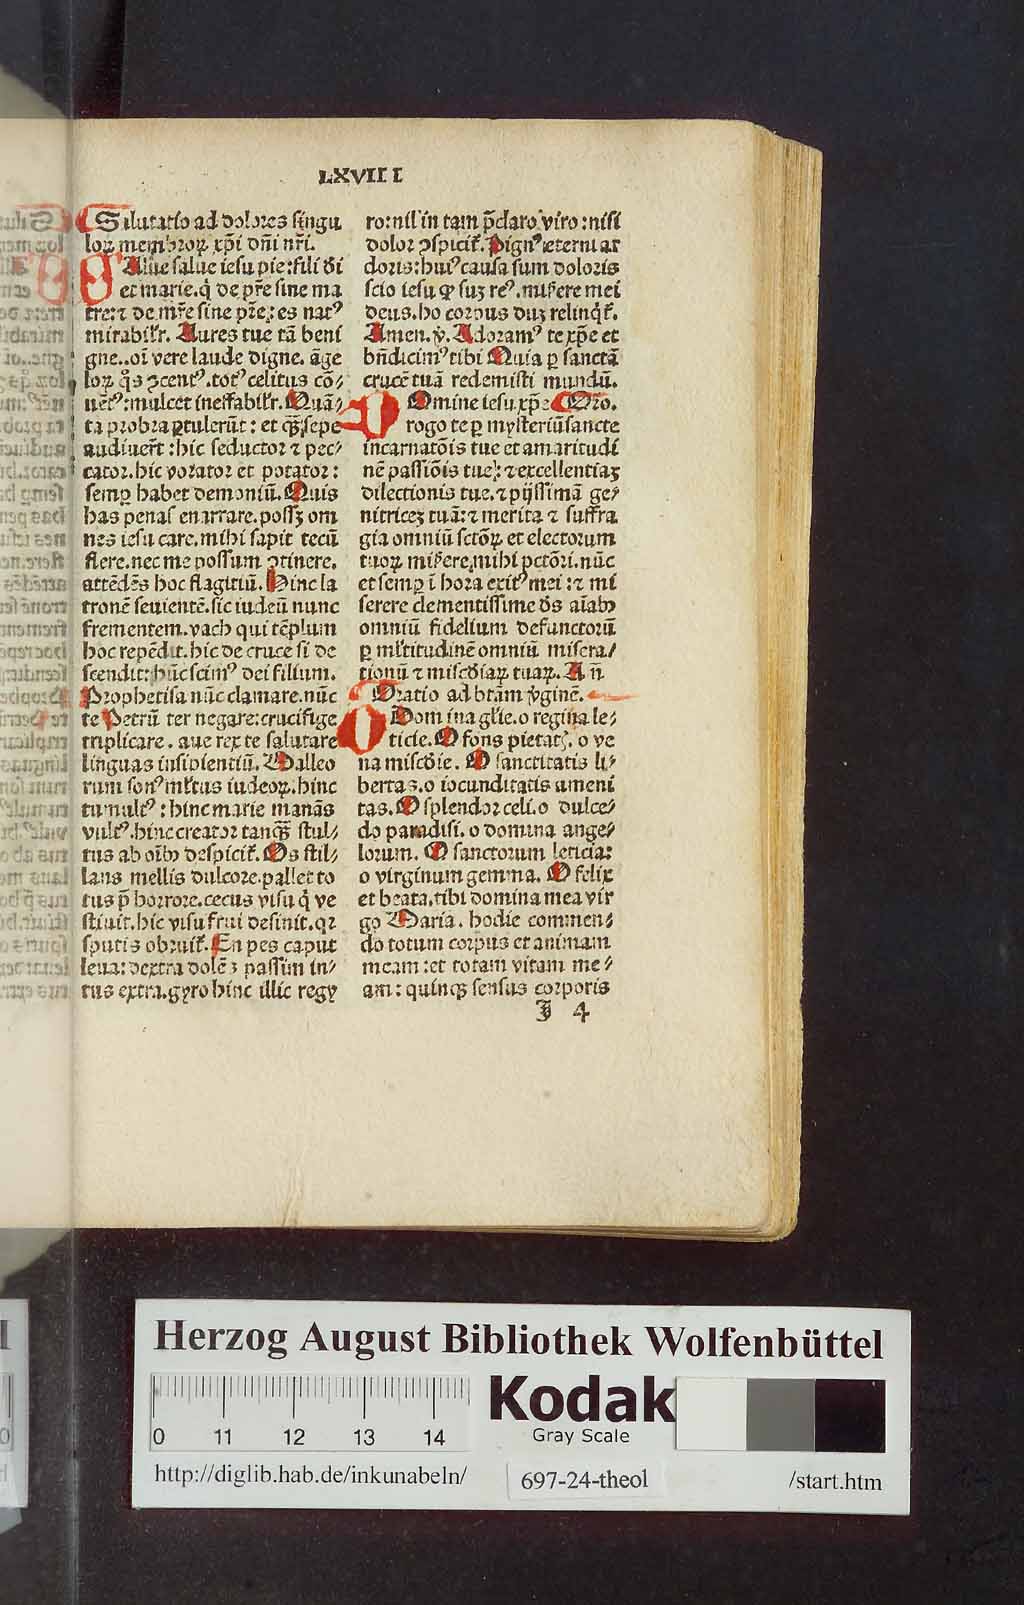 LXVIII
Salutatio ad dolores singu
loꝝ membroꝝ xp̄i dn̄i nr̄i.
SAlue salue iesu pie:fili d̄i
et marie.q̇ de pr̄e sine ma
tre:⁊ de mr̄e sine pr̄e:es natꝰ
mirabilr̄. Aures tue tā beni
gne..oī vere laude digne. āge
loꝝ q̊s ꝯcentꝰ.totꝰ celitus cō⸗
uētꝰ:mulcet ineffabilr̄. Quā⸗
ta probra ꝑtulerūt : et qꝫ̄ sepe
audiuer̄t : hic seductor ⁊ pec⸗
cator.hic vorator et potator :
semꝑ habet demoniū. Quis
has penas enarrare.possꝫ om
nes iesu care.mihi sapit tecū
flere.nec me possum ꝯtinere.
attēdēs hoc flagitiū. Hinc la
tronē seuientē.sic iudeū nunc
frementem.vach qui tēplum
hoc repēdit.hic de cruce si de
scendit:hūc scimꝰ dei filium.
Prophetisa nūc clamare.nūc
te Petrū ter negare:crucifige
triplicare. aue rex te salutare
linguas insipientiū. Malleo
rum sonꝰ ml̄tus iudeoꝝ.hinc
tumultꝰ : hinc marie manās
vultꝰ.hinc creator tanqꝫ̄ stul⸗
tus ab oībꝫ despicit̄. Os stil⸗
lans mellis dulcore.pallet to
tus p̄ horrore.cecus visu q̇ ve
stiuit.hic visu frui desinit.qꝛ
sputis obruit̄. En pes caput
leua: dextra dolēꝫ passim in⸗
tus extra.gyro hinc illic regy
ro:nil in tam p̄claro viro:nisi
dolor ꝯspicit̄. Pignꝰ eterni ar
doris:huiꝰ causa sum doloris
scio iesu qꝛ suꝫ reꝰ.miẜere mei
deus.ho corpus duꝫ relinq̄t̄.
Amen. ℣. Adoramꝰ te xp̄e et
bn̄dicimꝰ tibi Quia ꝑ sanctā
crucē tuā redemisti mundū.
DOmine iesu xp̄e Oro.
rogo te ꝑ mysteriū sancte
incarnatōis tue et amaritudi
nē passiōis tue: ⁊ excellentiaꝫ
dilectionis tue.⁊ pijssimā ge⸗
nitriceꝫ tuā:⁊ merita ⁊ suffra
gia omniū sctōꝝ et electorum
tuoꝝ miẜere mihi pctōri.nūc
et semꝑ ī hora exitꝰ mei :⁊ mi
serere clementissime d̄s aīabꝫ
omniū fidelium defunctorū
ꝑ ml̄titudinē omniū misera⸗
tionū ⁊ misc̄diaꝝ tuaꝝ. A n̄
Oratio ad btām v̄ginē.
O Domina gl̄ie.o regina le⸗
ticie. O fons pietatꝭ. o ve
na misc̄die. O sanctitatis li⸗
bertas.o iocunditatis ameni
tas. O splendor celi.o dulce⸗
do paradisi.o domina ange⸗
lorum. O sanctorum leticia:
o virginum gemma. O felix
et beata.tibi domina mea vir
go Maria. hodie commen⸗
do totum corpus et animam
meam :et totam vitam me⸗
am : quinqꝫ sensus corporis
I 4
Herzog August Bibliothek Wolfenbüttel
0 11 12 13 14
Kodak
Gray Scale
http://diglib.hab.de/inkunabeln/ 697-24-theol /start.htm